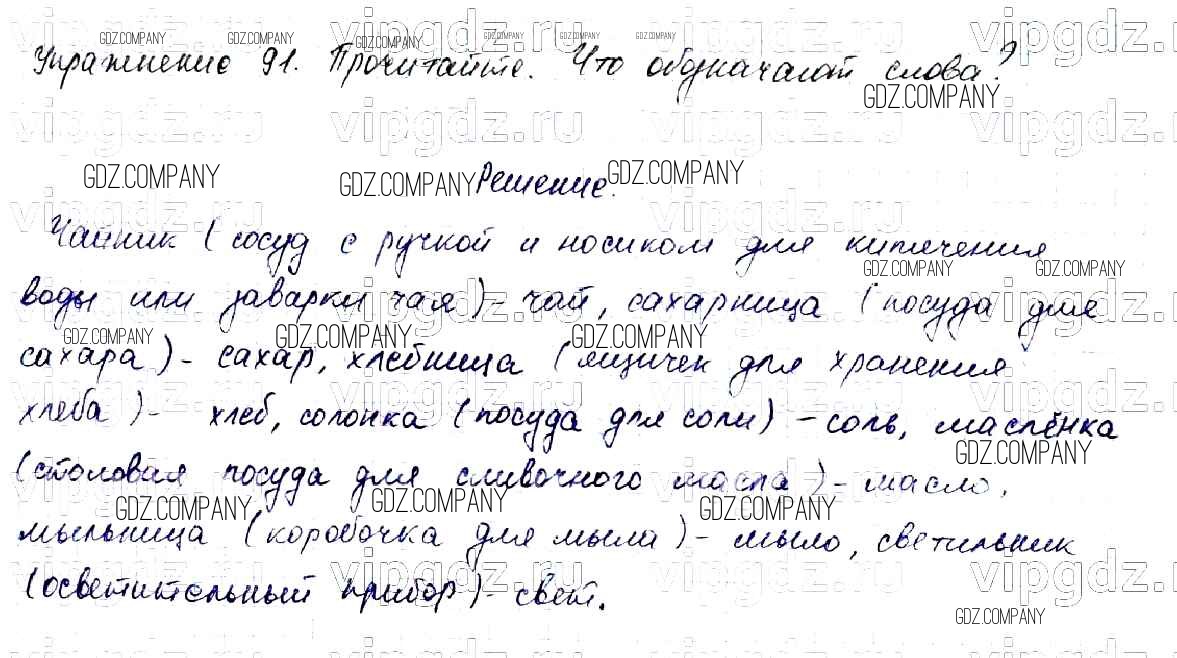 Упражнение 91. Прочитайте. Что обозначают слова?
Решение.
Чайник (сосуд с ручкой и носиком для кипячения
воды или заварки чая) - чай, сахарница (посуда для
сахара) - сахар, хлебница (ящичек для хранения
хлеба) - хлеб, солонка (посуда для соли) - соль, маслёнка
(столовая посуда для сливочного масла) - масло,
мыльница (коробочка для мыла) - мыло, светильник
(осветительный прибор) - свет.
vipgdz.ru
GDZ.COMPANY